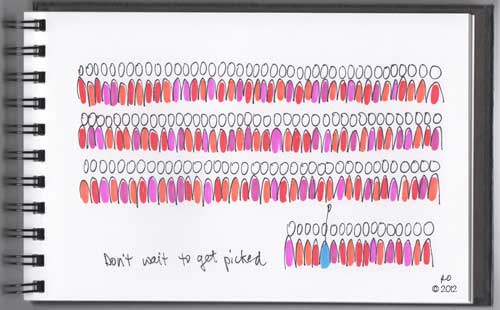 Don't wait to get picked
RO
© 2012